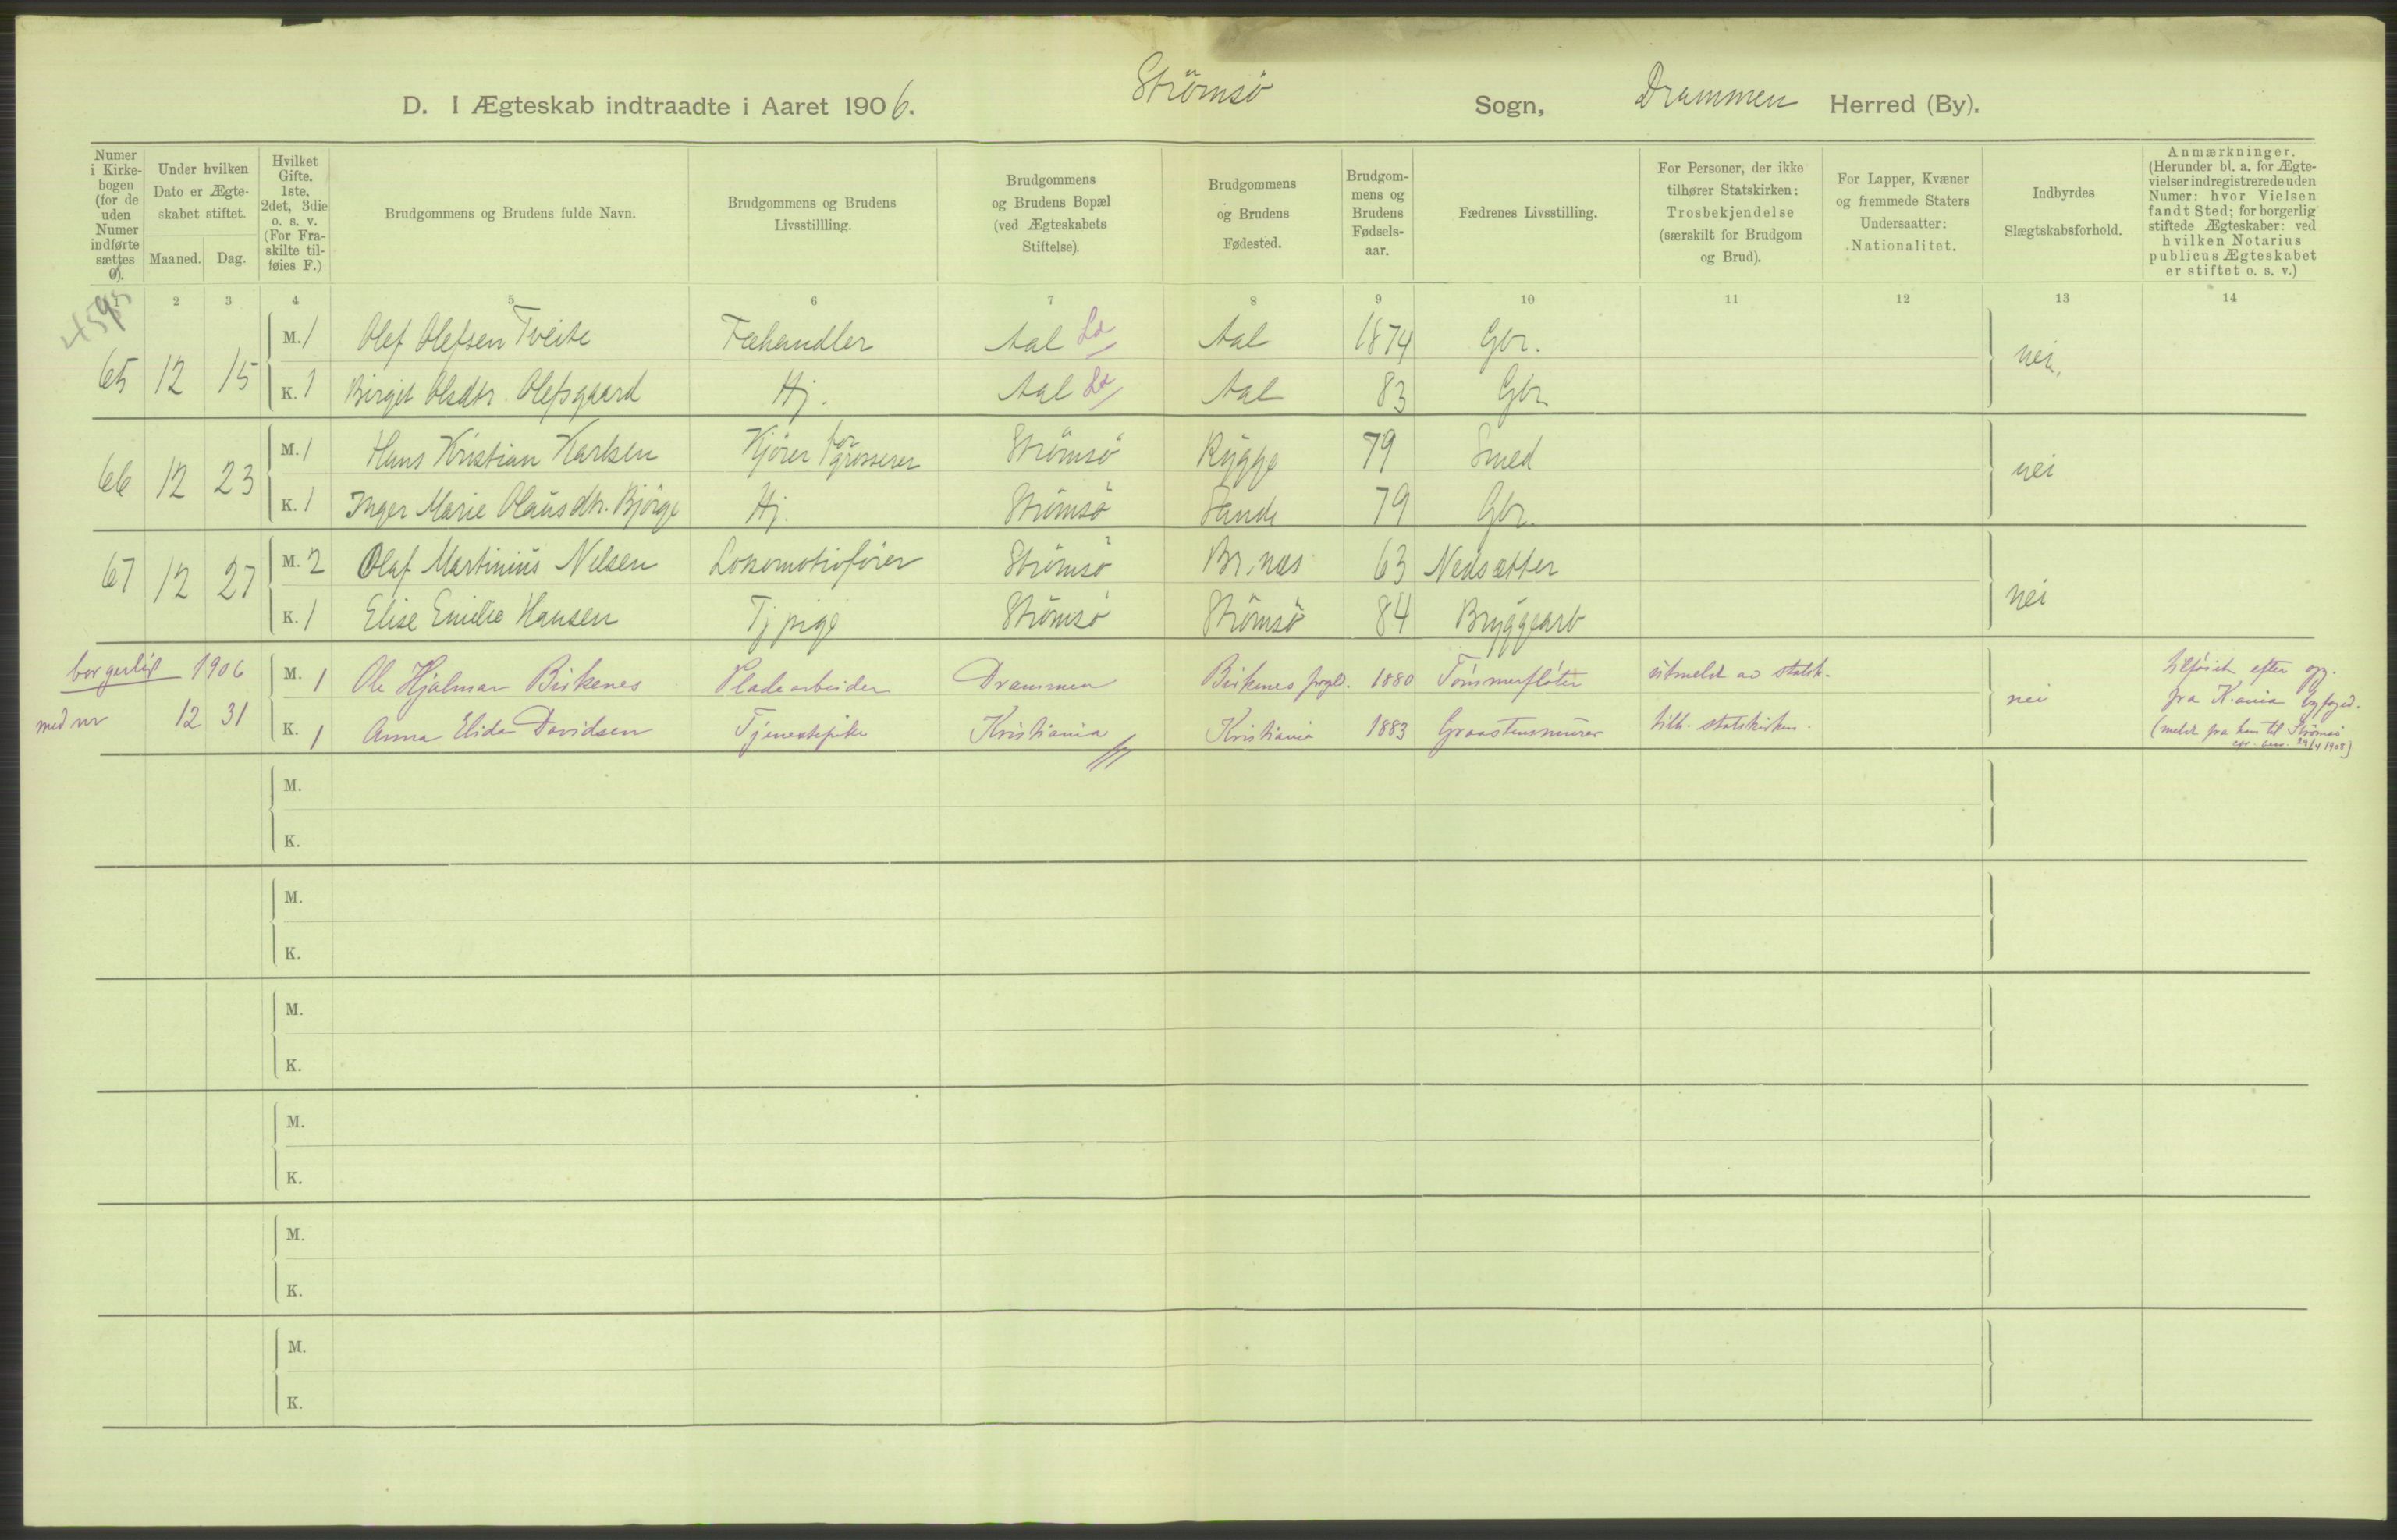 D. I Ægteskab indtraadte i Aaret 1906. Strömsö Sogn, Drammen Herred (By).
Numer i Kirkebogen (for de uden Numer indførte sættes 0).
Under hvilken Dato er Ægteskabet stiftet.
Maaned. Dag.
Hvilket Gifte. 1ste, 2det, 3die o. s. v. (For Fraskilte tilføies F.)
Brudgommens og Brudens fulde Navn.
Brudgommens og Brudens Livsstillling.
Brudgommens og Brudens Bopæl (ved Ægteskabets Stiftelse).
Brudgommens og Brudens Fødested.
Brudgommens og Brudens Fødselsaar.
Fædrenes Livsstilling.
For Personer, der ikke tilhører Statskirken: Trosbekjendelse (særskilt for Brudgom og Brud).
For Lapper, Kvæner og fremmede Staters Undersaatter: Nationalitet.
Indbyrdes Slægtskabsforhold.
Anmærkninger. (Herunder bl. a. for Ægtevielser indregistrerede uden Numer: hvor Vielsen fandt Sted; for borgerlig stiftede Ægteskaber: ved hvilken Notarius publicus Ægteskabet er stiftet o. s. v.)
1 2 3 4 5 6 7 8 9 10 11 12 13 14
M. 1 Olef Olefsen Tveite Fæhandler Aal Ld Aal 1874 Gbr.
65 12 15 nei.
K. 1 Birgit Olsdtr. Olefsgaard Hj. Aal Ld Aal 83 Gbr
M. 1 Hans Kristian Karlsen Kjører for grosserer Strömsö Rygge 79 Smed
66 12 23 nei
K. 1 Inger Marie Olausdtr. Bjørge Hj. Strömsö Sande 79 Gbr.
M. 2 Olaf Martinius Nilsen Lokomotivfører Strömsö Br.næs 63 Nedsætter
67 12 27 nei
K. 1 Elise Emilie Hansen Tj pige Strömsö Strömsö 84 Bryggearb
borgerlig 1906 M. 1 Ole Hjalmar Birkenes Pladearbeider Drammen Birkenes prgld. 1880 Tømmerfløter utmeldt av statsk. nei tilføiet efter opg.
fra K.ania byfoged.
med nr 12 31 K. 1 Anna Elida Davidsen Tjenestepike Kristiania Kristiania 1883 Graastensmurer tilh. statskirken.
(meldt fra ham til Strömsö
29/4 1908)
M.
K.
M.
K.
M.
K.
M.
K.
M.
K.
M.
K.